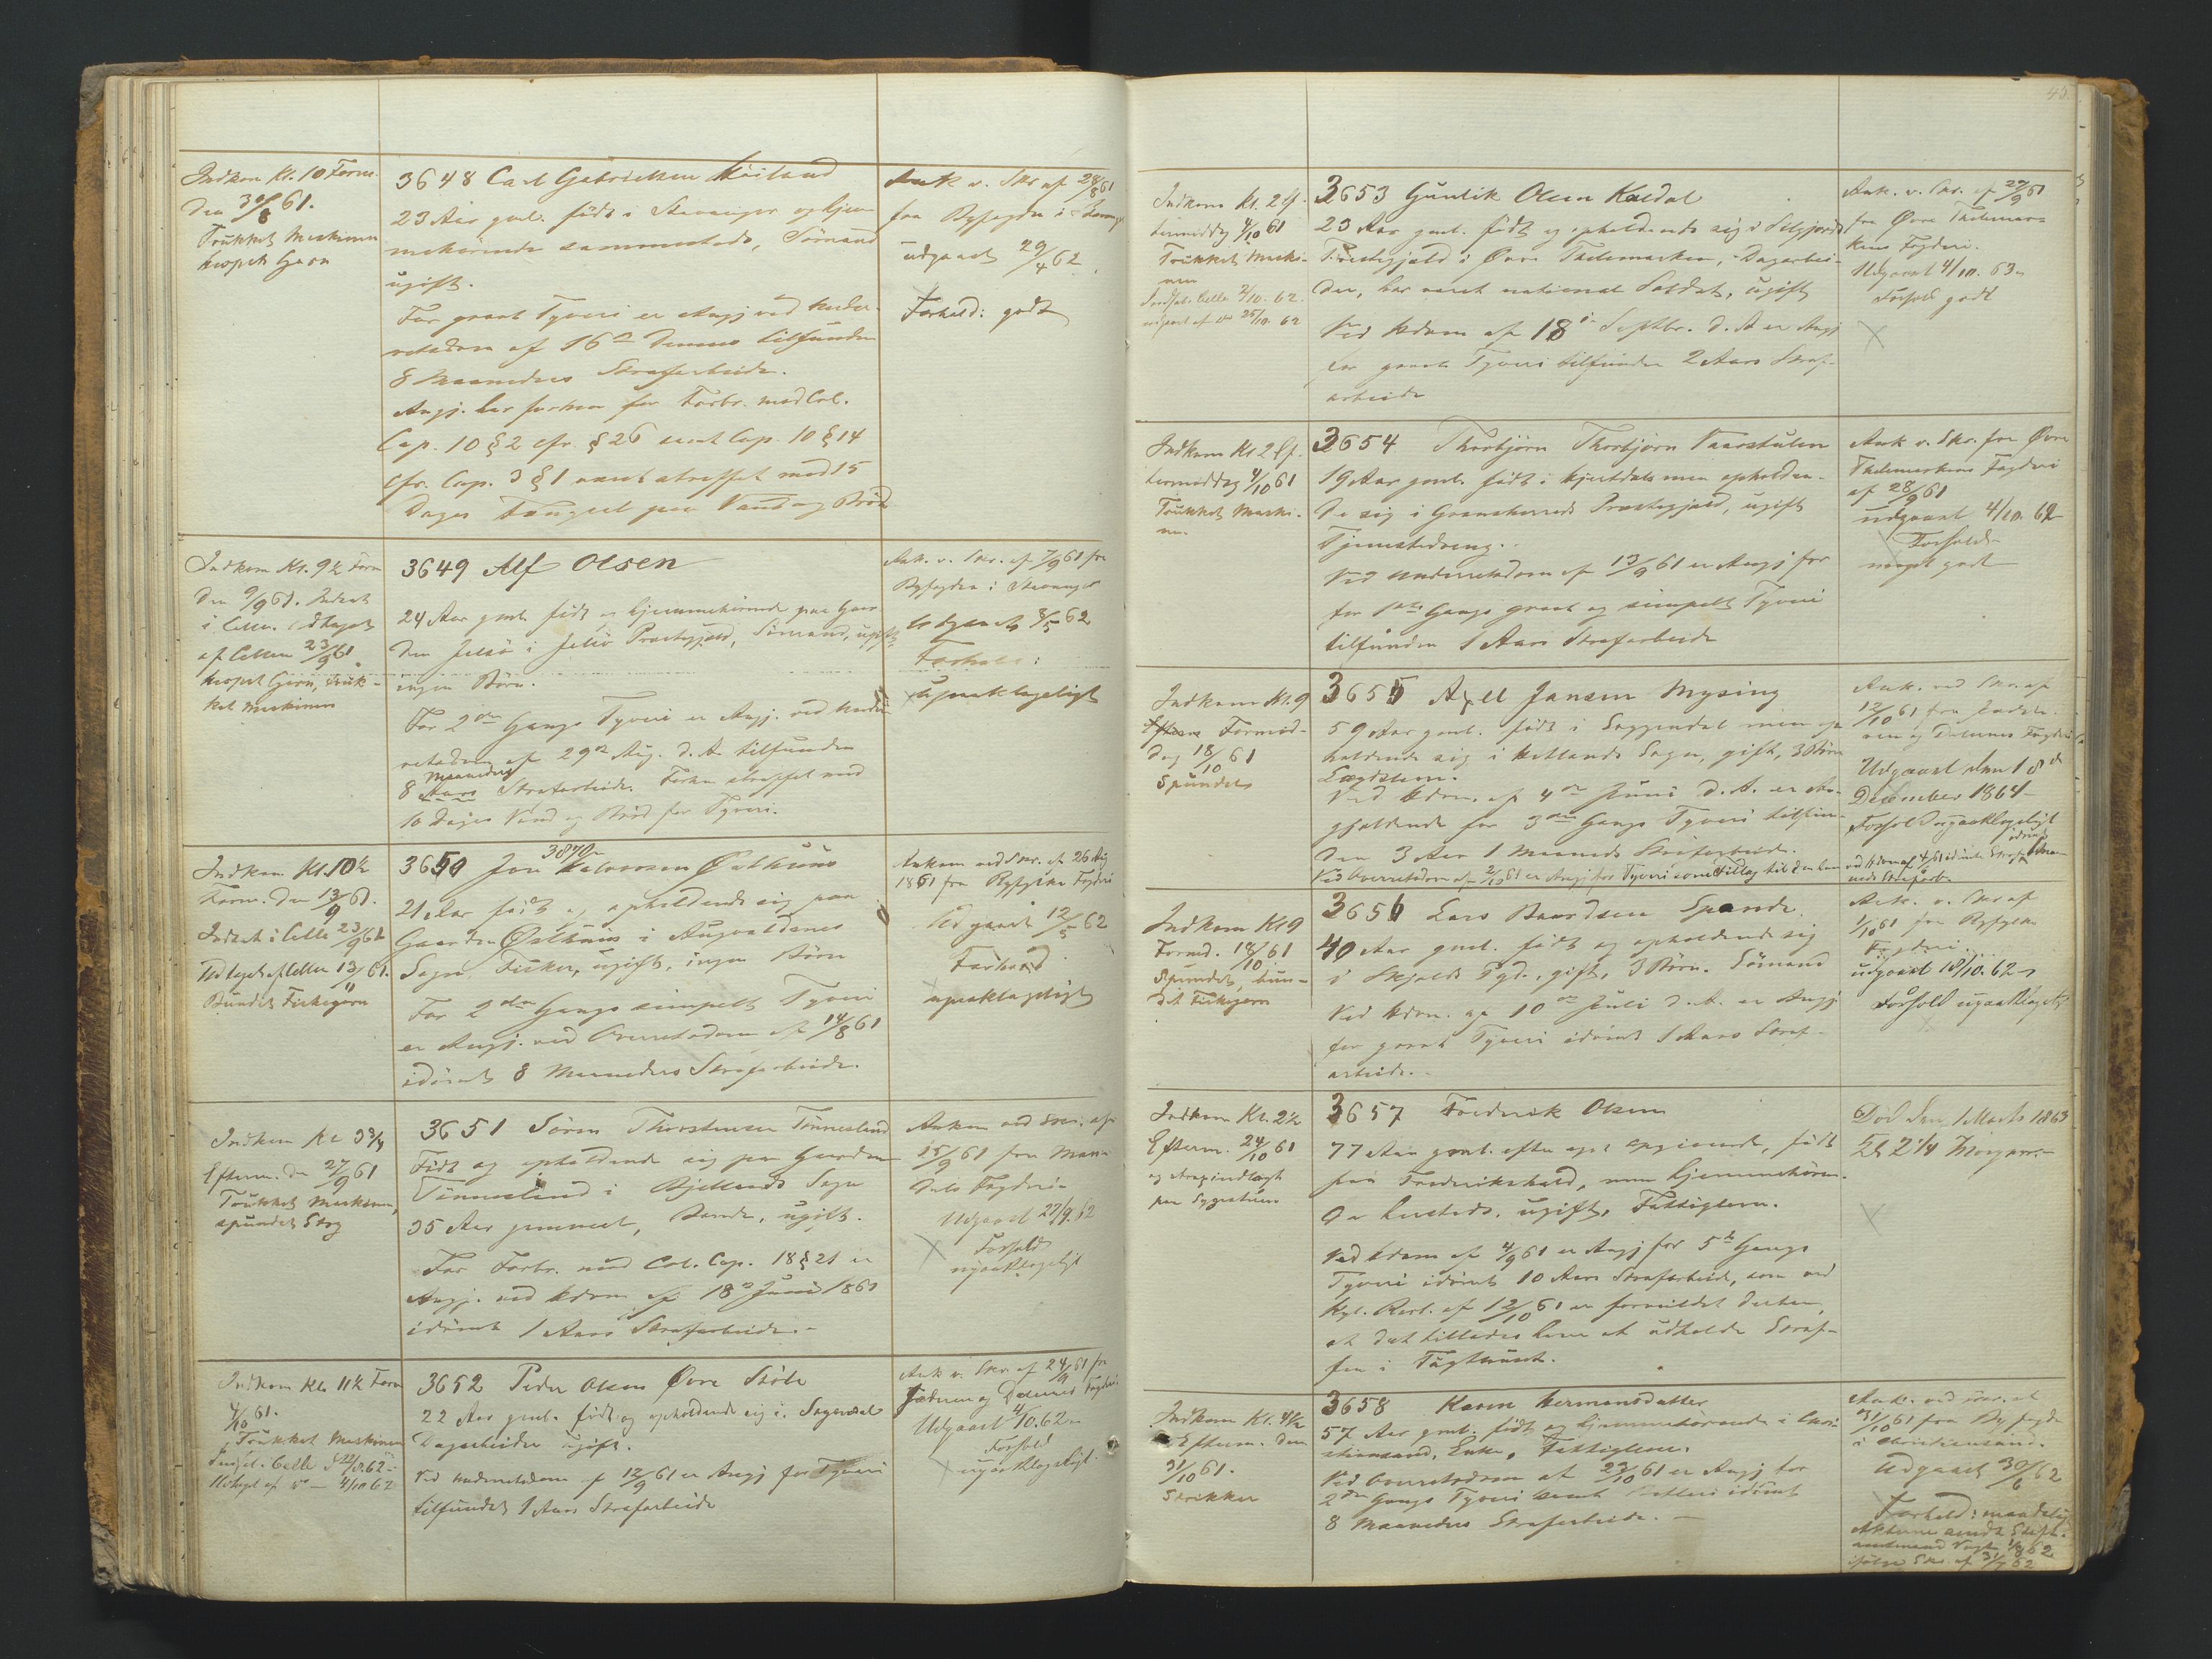 Indkom Kl. 10 Form.
den 30/8 61.
Trukket Maskinen
hespet Garn
3648 Carl Gabrielsen Höiland
23 Aar gml. födt i Stavanger og hjem
mehörende sammesteds, Sömand
ugift.
For grovt Tyveri er Angj ved Under-
retsdom af 16de dennes tilfunden
8 Maaneders Strafarbeide.
Angj. har forhen for Forbr. mod Col.
Cap. 10 § 2 cfr. § 26 samt Cap. 10 § 14
cfr. Cap. 3 § 1 været straffet med 15
Dages Fængsel paa Vand og Bröd
Ank v. Skr af 28/8 61
fra Byfogden i
udgaaet 29/4 62
Forhold: godt
Indkom Kl. 9½ Form
den 9/9 61. Indsat
i Celle. Udtaget
af Cellen 23/9 61
hespet Garn, truk-
ket Maskinen
3649 Alf Olsen
24 Aar gml. födt og hjemmehörende paa Gaar
den Jelsö i Jelsö Præstegjæld, Sömand, ugift
ingen Börn.
For 2den Gangs Tyveri er Angj. ved Under
retsdom af 29de Aug. d. A. tilfunden
8 Maaneders Aars Strafarbeide. Forhen straffet med
10 Dages Vand og Bröd for Tyveri.
Ank. v. Skr. af 7/9 61 fra
Byfogden i Stavanger
Udgaaet 8/5 62
Forhold:
upaaklageligt
Indkom Kl. 10½
Form. den 13/9 61.
Indsat i Celle 23/9 61
Udtaget af Cellen 13/11 61.
Bundet Fiskegarn
3650 Jon Halvorsen Östhuus
3870
21 Aar födt og opholdende sig paa
Gaarden Östhuus i Augvaldsnes
Sogn, Fisker, ugift, ingen Börn
For 2den Gangs simpelt Tyveri
er Angj. ved Overretsdom af 14/8 61
idömt 8 Maaneders Strafarbeide.
Ankom ved Skr. af 26 Aug
1861 fra Ryfylke Fogderi
Udgaaet 12/5 62
Forhold
upaaklageligt
Indkom Kl 3¾
Efterm. den 27/9 61
Trukket Maskinen,
spundet Strg
3651 Sören Thorstensen Tönnesland
Födt og opholdende sig paa Gaarden
Tönnesland i Bjellands Sogn
35 Aar gammel, ugift.
For Forbr. mod Col. Cap. 18 § 21 er
Angj. ved Hdom af 18de Juni 1861
idömt 1 Aars Strafarbeide.-
Ankom ved Skr. af
15/9 61 fra Man-
dals Fogderi.
Udgaaet 27/9.62
Forhold
upaaklageligt
Indkom Kl. 11½ Form
4/10 61.
Trukket Maskinen
Indsat. Celle d 22/8.62-
Udtagt af do - 4/10 62
3652 Peder Olsen Övre Störle
22 Aar gml. födt og opholdende sig i Sogndal
Dagarbeider ugift.
Ved Underretsdom af 12/9 61 er Angj for Tyveri
tilfundet 1 Aars Strafarbeide
Ank v. Skr. af 24/9 61 fra
Jæderen og Dalernes Fogderi.
Udgaaet 4/10.62.
Forhold
upaaklageligt.
43.
Indkom Kl. 2 Ef-
termiddag 4/10 61
Trukket Maski-
nen
Indsat. Celle 2/10. 62.
25/10. 62
3653 Gunlik Olsen Kaldal
23 Aar gml. födt og opholdende sig i Silgjords
Præstegjæld i Övre Thelemarken, Dagarbei-
der, har været national Soldat, ugift
Ved Hdom af 18de Septbr. d. A er Angj
for grovt Tyveri tilfunden 2 Aars Straf-
arbeide
Ank. v. Skr. af 27/9 61
fra Övre Thelemar-
kens Fogderi.
Udgaaet 4/10. 63.
Forhold godt
Indkom Kl 2 Ef-
termiddag 4/10 61
Trukket Maski-
nen.
3654 Thorbjörn Thorbjörn Vaarstulen
19 Aar gml. födt i Hjertdals men opholden-
de sig i Gransherreds Præstegjæld, ugift
Tjenestedreng.
Ved Underretsdom af 13/9 61 er Angj for
for 1ste Gangs grovt og simpelt Tyveri
tilfunden 1 Aars Strafarbeide
Ank v. Skr. fra Övre
Thelemarkens Fogderi
af 28/9 61
udgaaet 4/10. 62
Forhold
meget godt
Indkom Kl. 9
Efterm Formid-
dag 18/10 61
Spundet
3655 Axel Jansen Mysing
59 Aar gml. födt i Soggendal men op
holdende sig i Hetlands Sogn, gift, 3 Börn
Lægdslem.
Ved Hdom. af 4de Juni d. A. er An-
gjældende for 3die Gangs Tyveri tilfun-
den 3 Aar 1 Maaneds Strafarbeide.
Ved Overretsdom af 2/10 61 er Angj for Tyveri som Tillæg til den ham ved Hdom af 4/6 61 idömte Straf idömt 1 Maa-
neds Strafarb.
Ank. ved Skr. af
12/10 61 fra Jæder-
en og Dalernes Fogderi
Udgaaet den 18de
December 1864-
Forhold upaaklageligt
Indkom Kl 9
Formd. 18/10 61
Spundet, bun-
det Fiskegarn
3656 Lars Baardsen Spande.
40 Aar gml. födt og opholdende sig
i Skjolds Pgd., gift, 3 Börn. Sömand
Ved Hdom. af 10de Juli d. A. er Angj
for grovt Tyveri idömt 1 Aars Straf-
arbeide.
Ank. v. Skr af
1/10 61 fra Ryfylke
Fogderi.
udgaaet 18/10. 62
Forhold upaaklageligt
Indkom Kl. 2½
Efterm. 24/10 61
og strax indlagt
paa Sygestuen
3657 Frederik Olsen
77 Aar gml. efter eget Opgivende, födt
paa Frederikshald, men hjemmehören-
de hersteds. ugift, Fattiglem.
Ved Hdom af 4/9 61 er Angj for 5te Gangs
Tyveri idömt 10 Aars Strafarbeide, som ved
Kgl. Resl. af 12/10 61 er formildet derhen,
at det tillades ham at udholde Straf-
fen i Tugthuset.
Död den 1 Marts 1863
Kl 2¼ Morgen.-
Indkom Kl. 4½
Efterm. den
31/10 61.
Strikker
3658 Karen Hermansdatter
57 Aar gml. födt og hjemmehörende i Chri-
stiansand, Enke, Fattiglem.
Ved Overretsdom af 23/10 61 er Angj for
2den Gangs Tyveri samt Betleri idömt
8 Maaneders Strafarbeide. -
Ank. ved Skr. af
31/10 61 fra Byfogden
i Christiansand.
Udgaaet 30/6 62
Forhold: maadelig
Akterne sendt Stift-
amtmand Vogt 1/8 62
ifölge Skr. af 31/7 62